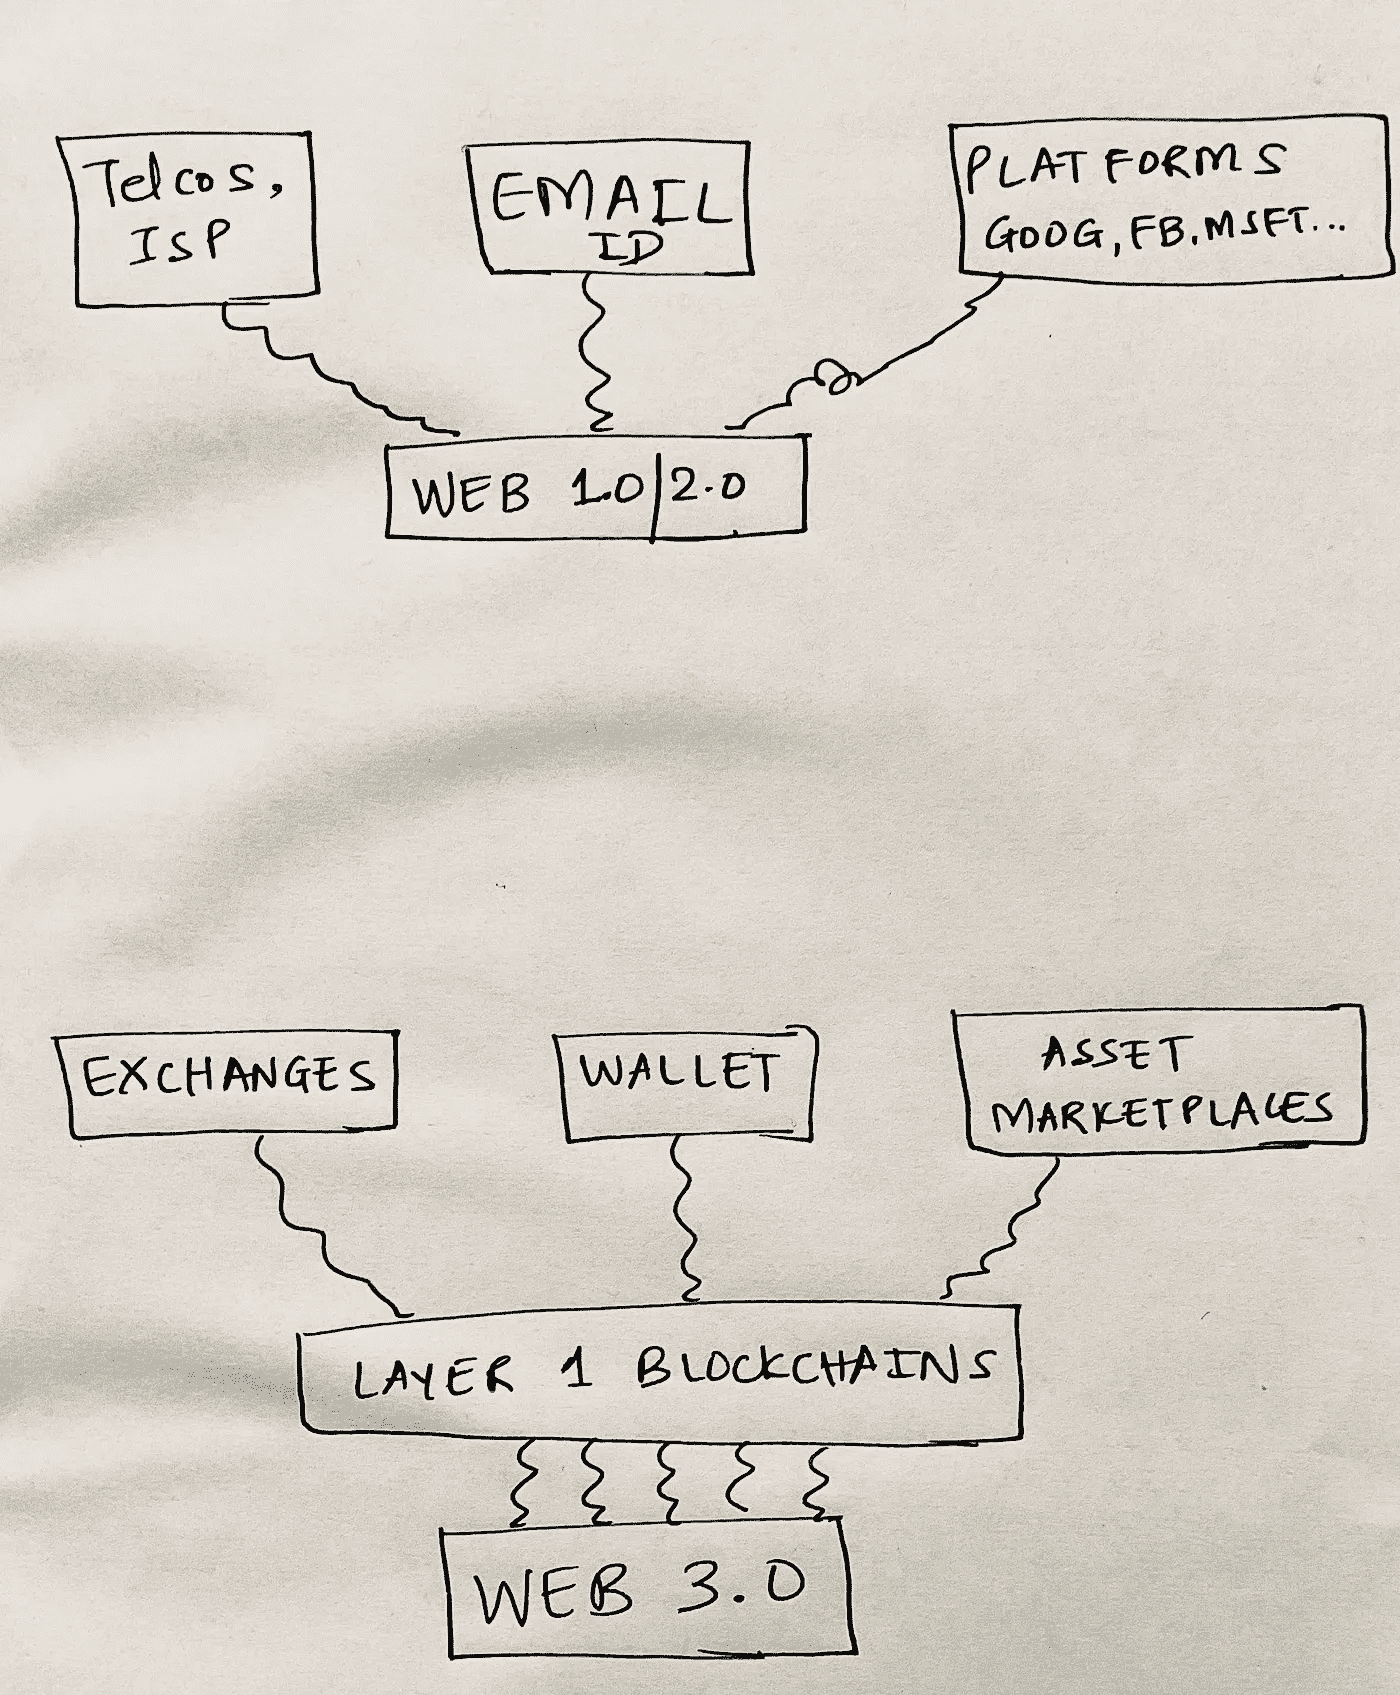 Telcos,
ISP
EMAIL
ID
PLATFORMS
GOOG, FB, MSFT...
WEB 1.0|2.0
EXCHANGES
WALLET
ASSET
MARKETPLACES
LAYER 1 BLOCKCHAINS
WEB 3.0